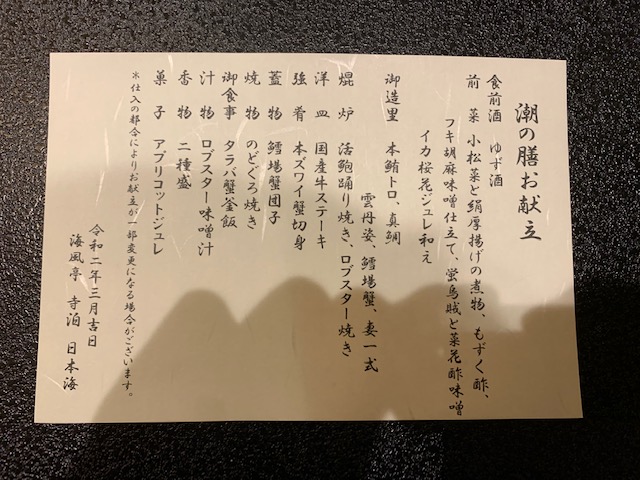 潮の膳お献立
食前酒　ゆず酒
前　菜　小松菜と絹厚揚げの煮物、もずく酢、
フキ胡麻味噌仕立て、蛍烏賊と菜花酢味噌
イカ桜花ジュレ和え
御造里　本鮪トロ、真鯛
雲丹姿、鱈場蟹、妻一式
焜　炉　活鮑踊り焼き、ロブスター焼き
洋　皿　国産牛ステーキ
強　肴　本ズワイ蟹切身
蓋　物　鱈場蟹団子
焼　物　のどぐろ焼き
御食事　タラバ蟹釜飯
汁　物　ロブスター味噌汁
香　物　二種盛
菓　子　アプリコットジュレ
※仕入の都合によりお献立が一部変更になる場合がございます。
令和二年三月吉日
海風亭　寺泊　日本海